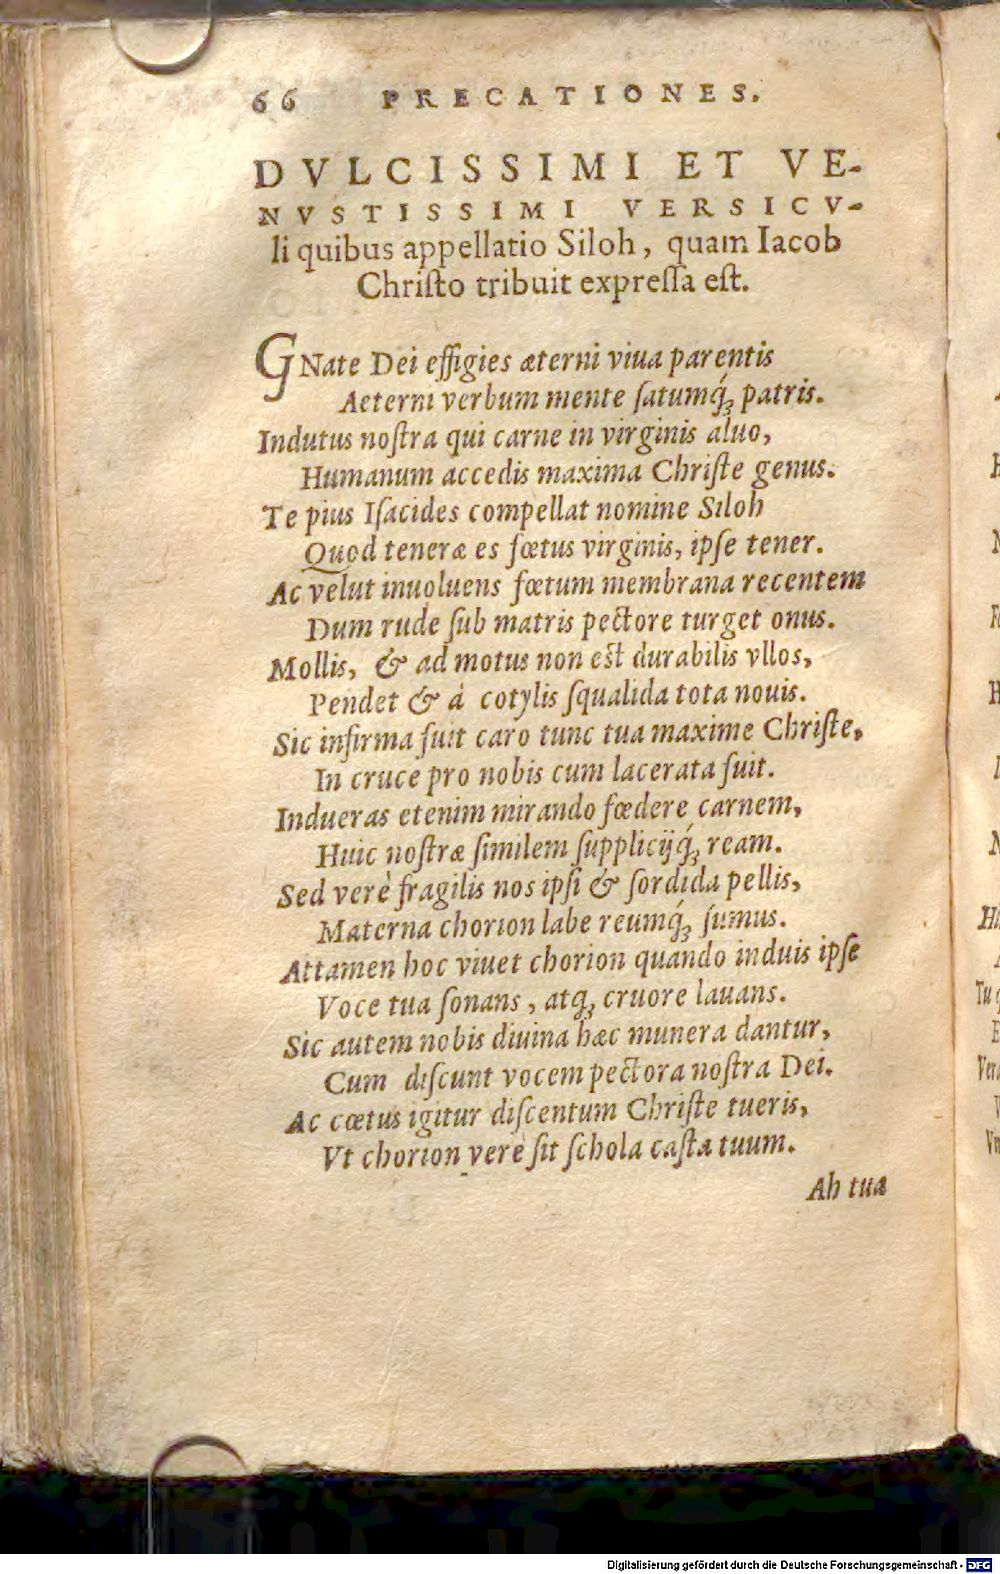 66 PRECATIONES.
DVLCISSIMI ET VE-
NVSTISSIMI VERSICV-
li quibus appellatio Siloh, quam Iacob
Chriſto tribuit expreſſa eſt.
GNate Dei effigies æterni viua parentis
Aeterni verbum mente ſatumq́; patris.
Indutus noſtra qui carne in virginis aluo,
Humanum accedis maxima Chriſte genus.
Te pius Iſacides compellat nomine Siloh
Quod teneræ es fœtus virginis, ipſe tener.
Ac velut inuoluens fœtum membrana recentem
Dum rude ſub matris pectore turget onus.
Mollis, & ad motus non est durabilis vllos,
Pendet & à cotylis ſqualida tota nouis.
Sic infirma fuit caro tunc tua maxime Chriſte,
In cruce pro nobis cum lacerata fuit.
Indueras etenim mirando fœdere carnem,
Huic noſtræ ſimilem ſupplicijq́; ream.
Sed verè fragilis nos ipſi & ſordida pellis,
Materna chorion labe reumq́; ſumus.
Attamen hoc viuet chorion quando induis ipſe
Voce tua ſonans, atq; cruore lauans.
Sic autem nobis diuina hæc munera dantur,
Cum diſcunt vocem pectora noſtra Dei.
Ac cœtus igitur diſcentum Chriſte tueris,
Vt chorion verè ſit ſchola caſta tuum.
Ah tua
Digitalisierung gefördert durch die Deutsche Forschungsgemeinschaft - DFG